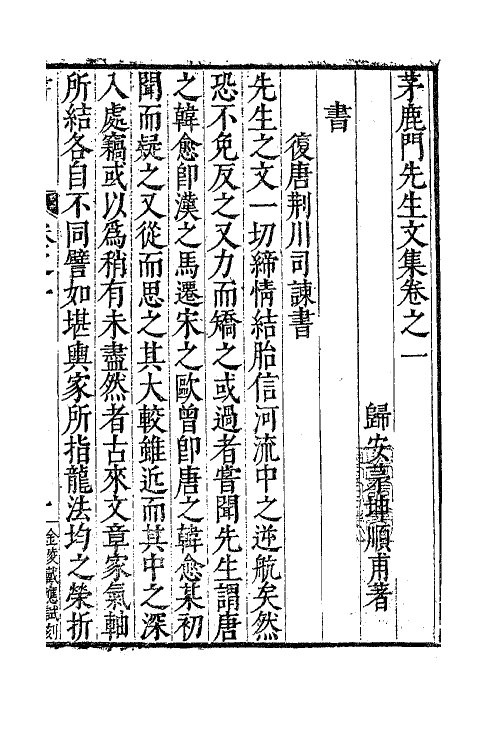 茅鹿門先生文集卷之一
歸安茅坤順甫著
書
復唐荆川司諫書
先生之文一切締情結胎信河流中之逆航矣然
恐不免反之又力而矯之或過者嘗聞先生謂唐
之韓愈卽漢之馬遷宋之歐曾卽唐之韓愈某初
聞而疑之又從而思之其大較雖近而其中之深
入處竊或以爲稍有未盡然者古來文章家氣軸
所結各自不同譬如堪輿家所指龍法均之縈折
卷之一
一
金陵戴應試刻